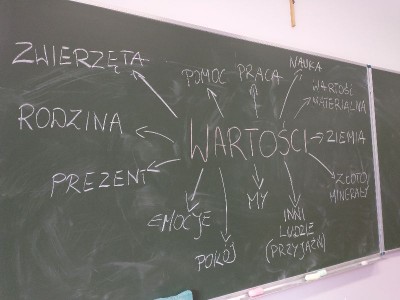 ZWIERZĘTA
POMOC
PRACA
NAUKA
WARTOŚĆ
MATERIALNA
RODZINA
WARTOŚCI
ZIEMIA
PREZENT
ZŁOTO/
MINERAŁY
EMOCJE
MY
INNI
LUDZIE
(PRZYJAŹŃ)
POKÓJ